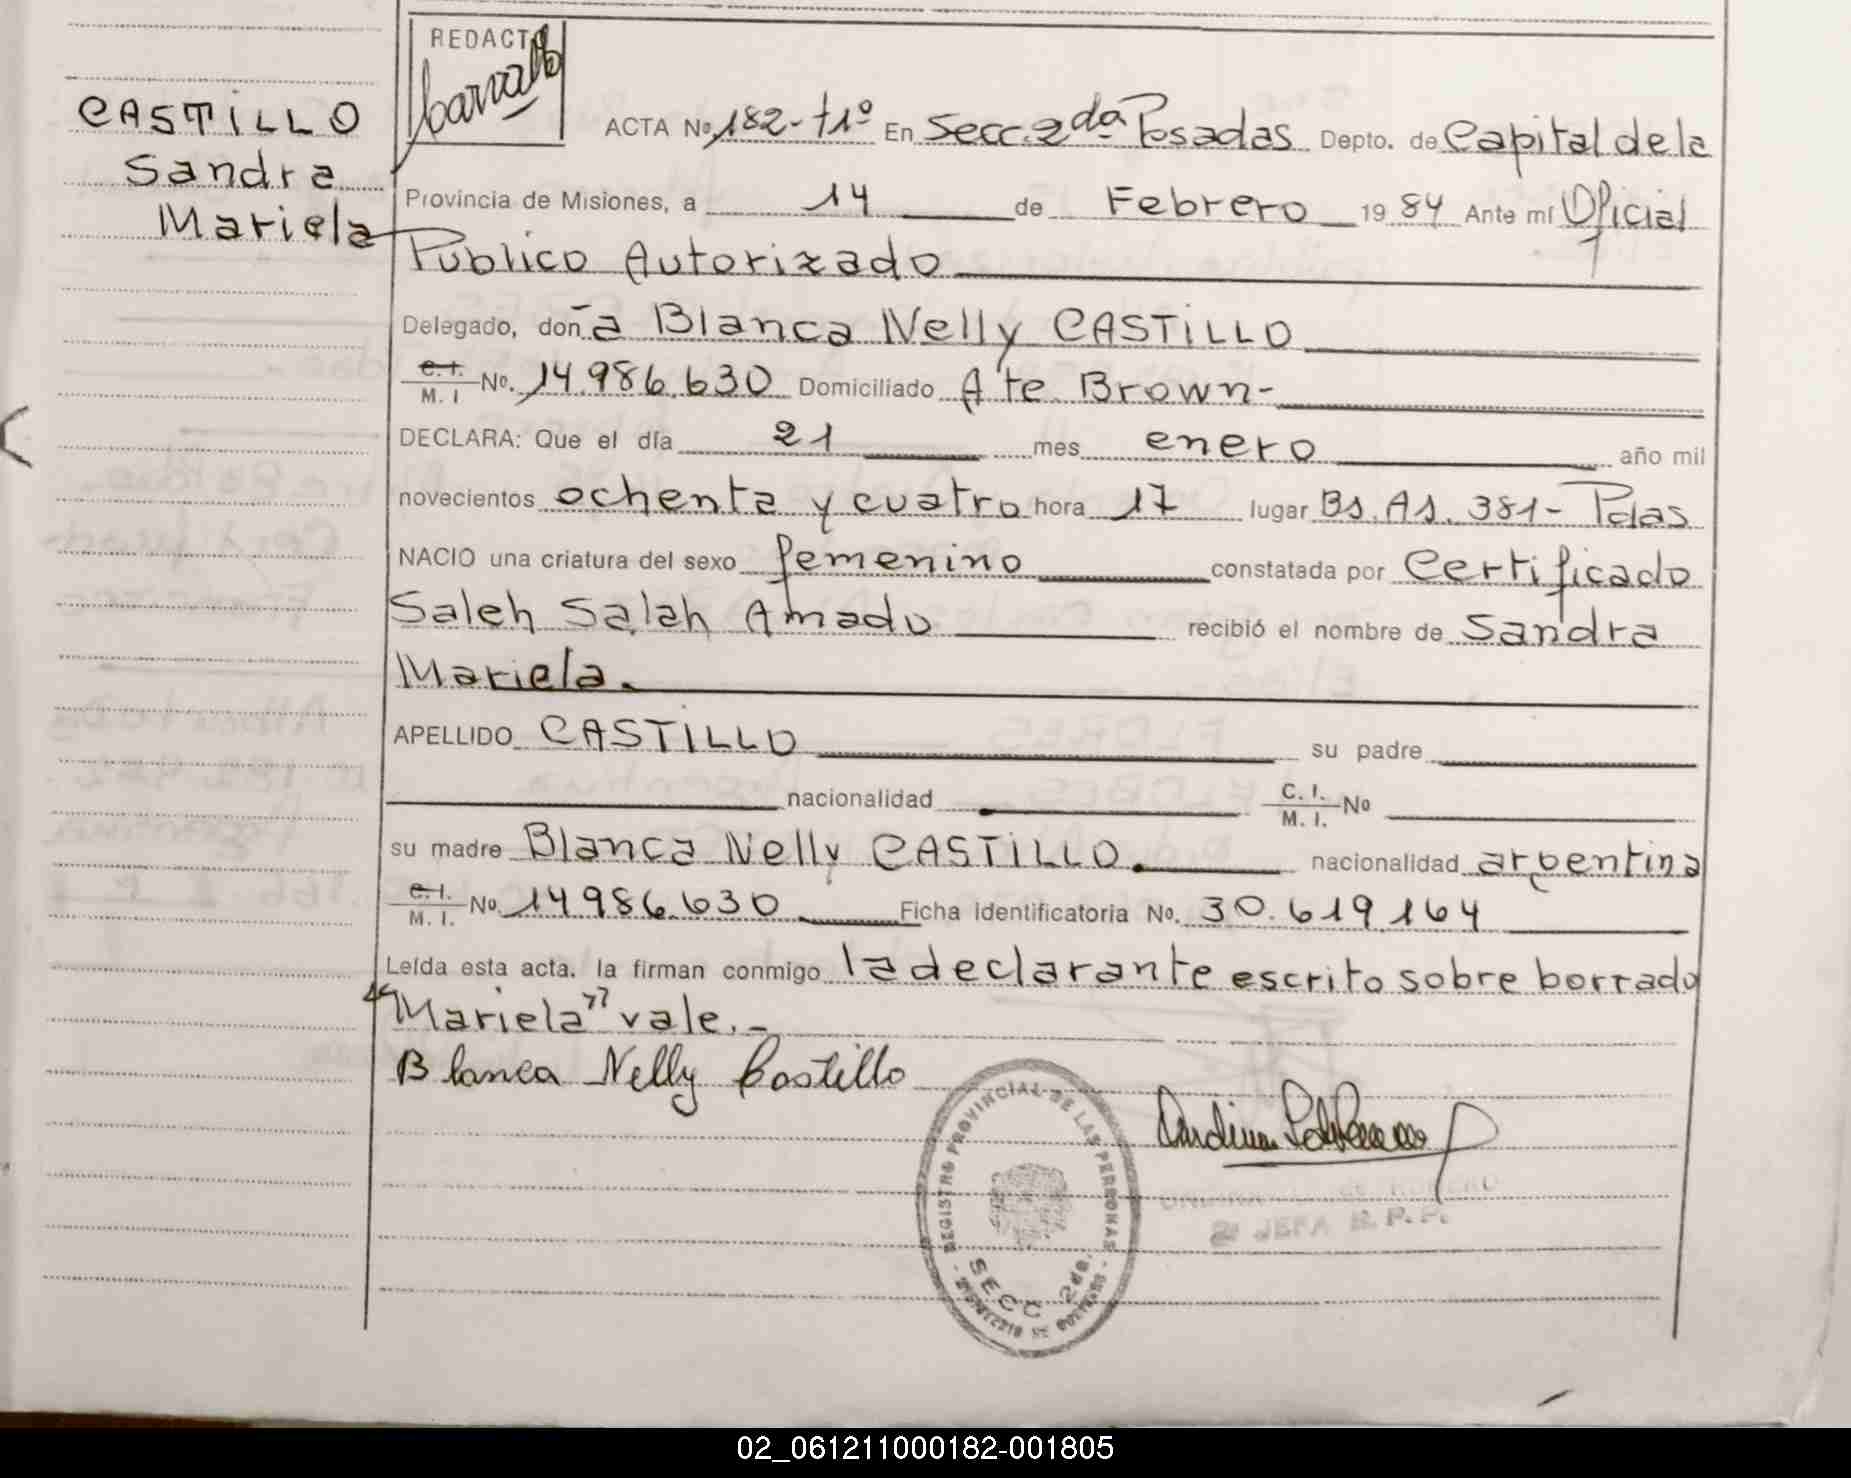 CASTILLO
Sandra
Mariela
REDACTO
ACTA No. 182-t1º En Secc. 2da Posadas Depto. de Capital de la
Provincia de Misiones, a 14 de Febrero 1984 Ante mí Oficial
Público Autorizado
Delegado, doña Blanca Nelly CASTILLO
C.I. M.I No. 14.986.630 Domiciliado Ate Brown-
DECLARA: Que el día 21 mes enero año mil
novecientos ochenta y cuatro hora 17 lugar Bs. As. 381- Pdas
NACIO una criatura del sexo femenino constatada por Certificado
Saleh Salah Amado recibió el nombre de Sandra
Mariela.
APELLIDO CASTILLO su padre
nacionalidad C.I. M.I. No
su madre Blanca Nelly CASTILLO. nacionalidad argentina
C.I. M.I. No. 14986.630 Ficha Identificatoria No. 30.619.164
Leída esta acta. la firman conmigo la declarante escrito sobre borrado
"Mariela" vale.-
Blanca Nelly Castillo
REGISTRO PROVINCIAL DE LAS PERSONAS
SECC 2da.
2º JEFA R.P.P.
02_061211000182-001805